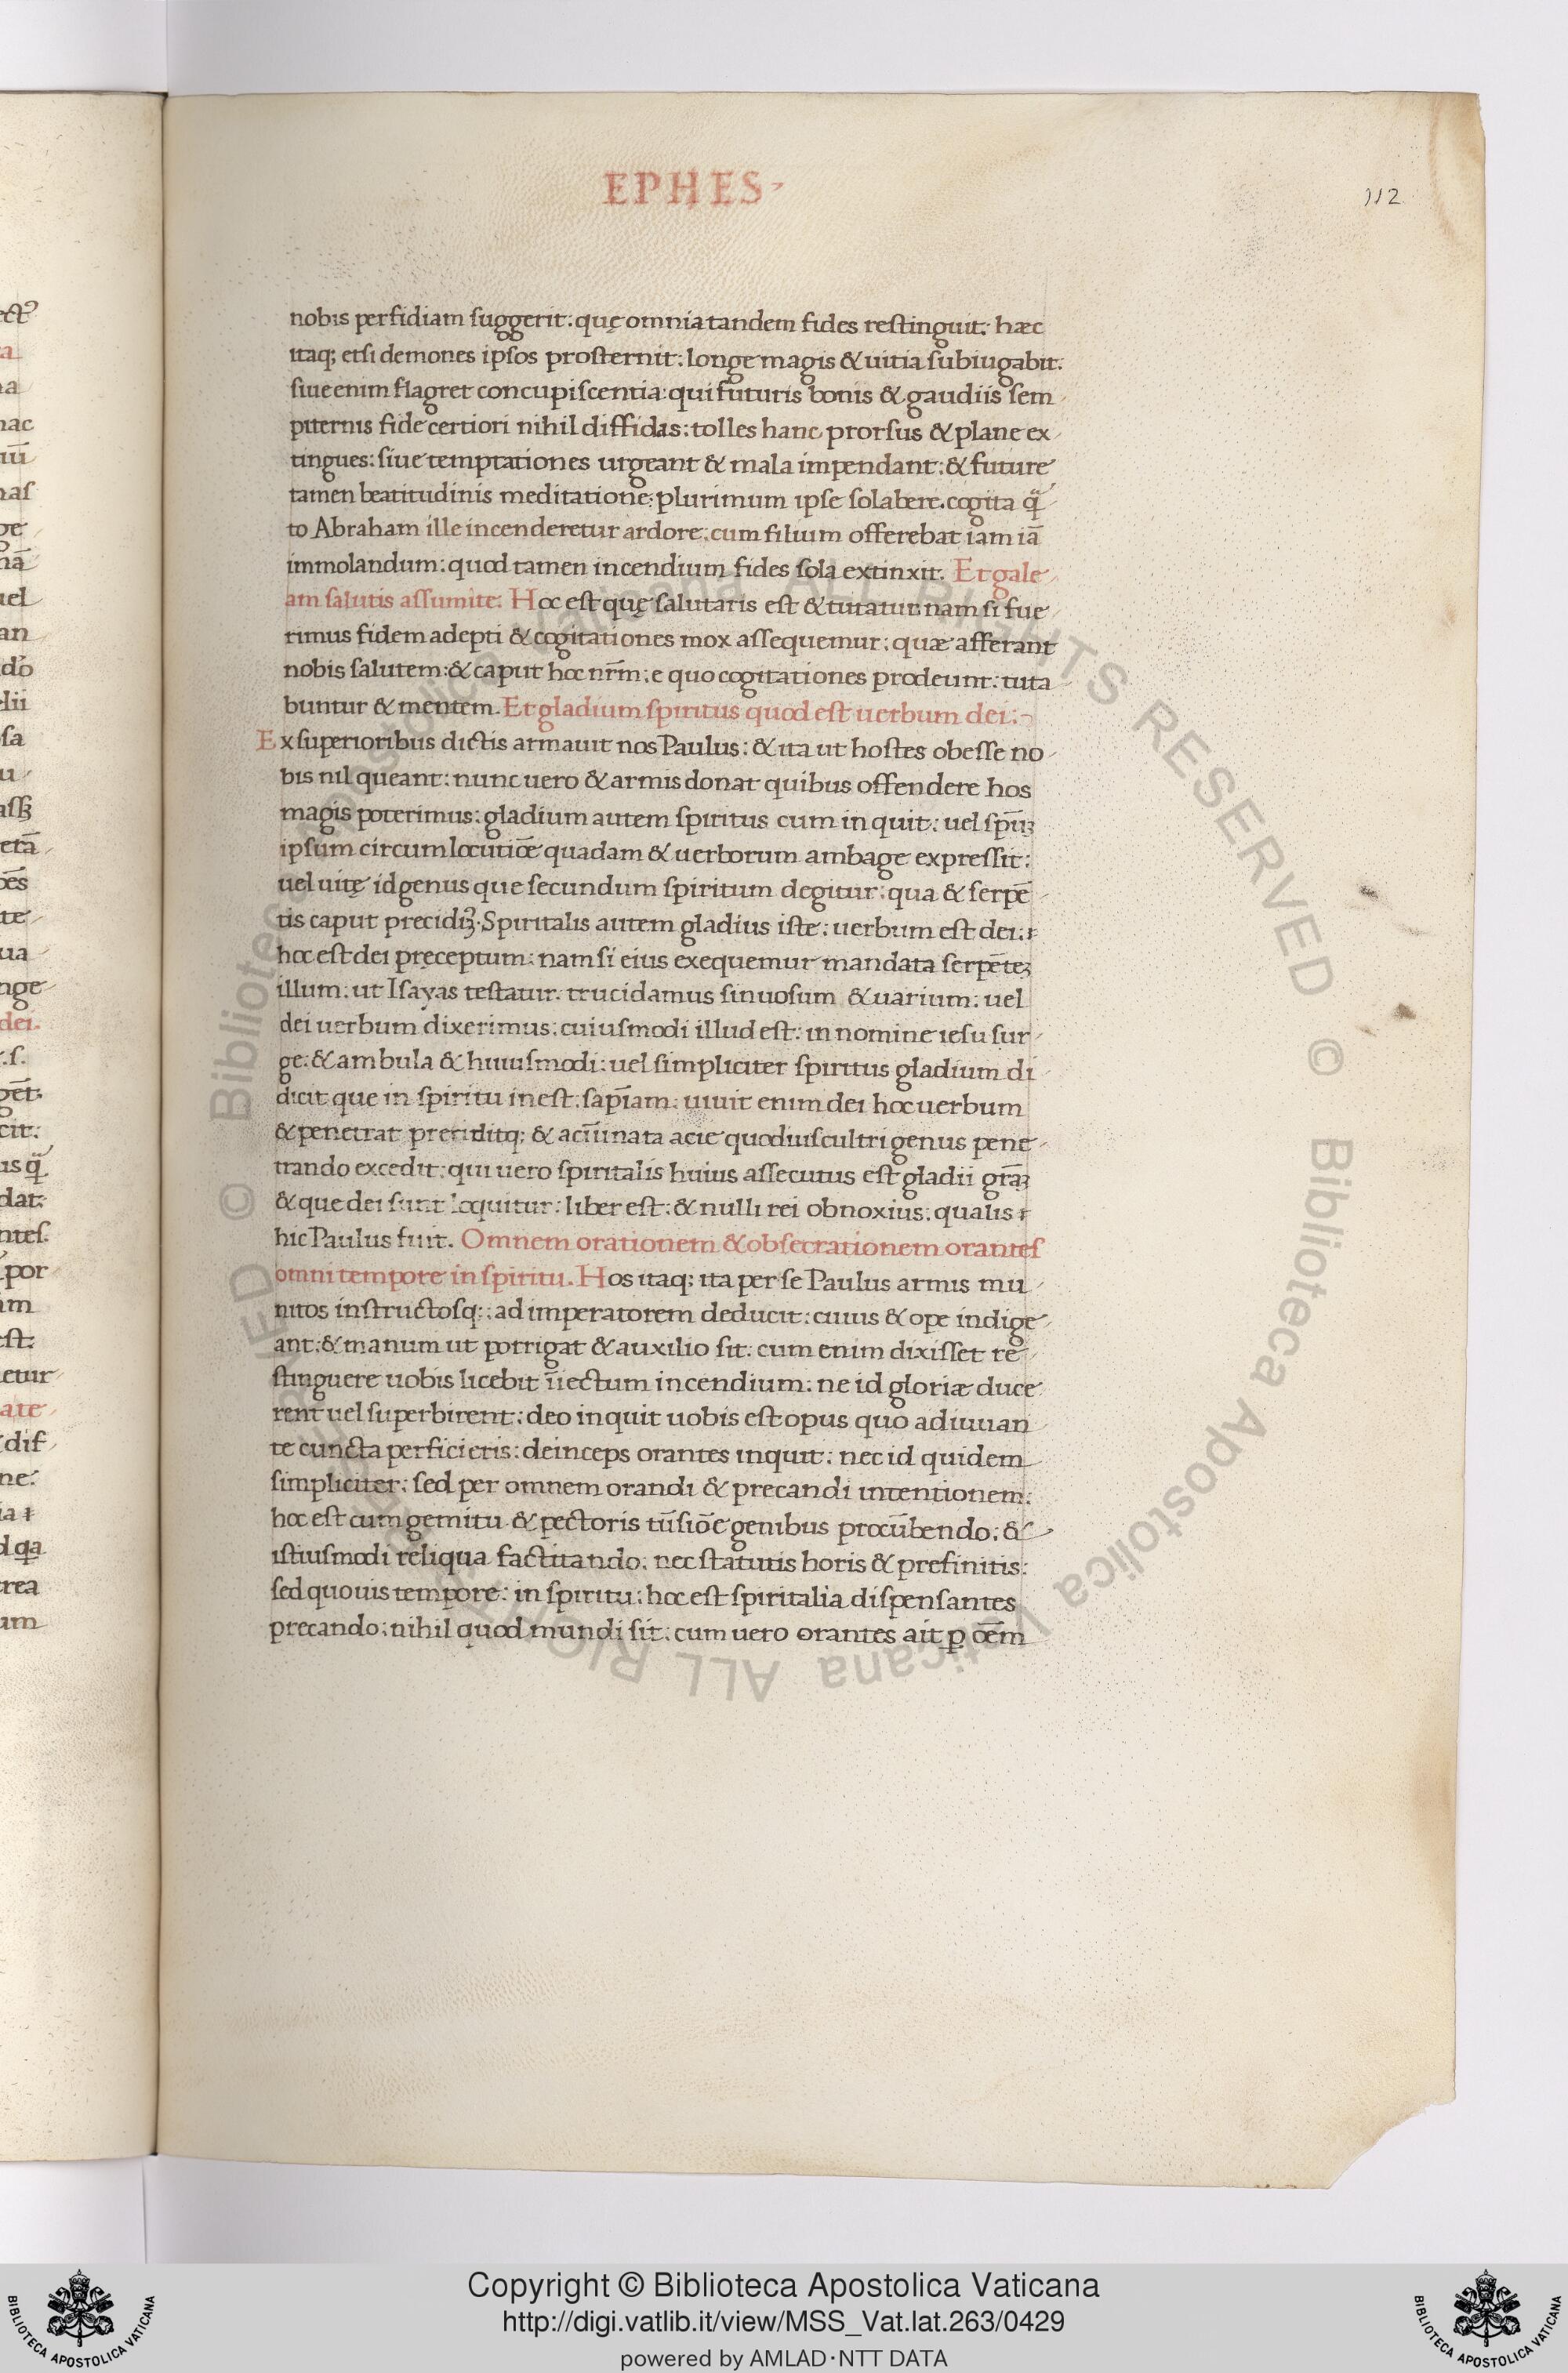 EPHES
112
nobis perfidiam suggerit: quę omnia tandem fides restinguit: hæc
itaq; etsi demones ipsos prosternit: longe magis & uitia subiugabit.
siue enim flagret concupiscentia: qui futuris bonis & gaudiis sem
piternis fide certiori nihil diffidas: tolles hanc prorsus & plane ex
tingues: siue temptationes urgeant & mala impendant: & future
tamen beatitudinis meditatione: plurimum ipse solabere. cogita q̃
to Abraham ille incenderetur ardore: cum filium offerebat iam iā
immolandum: quod tamen incendium fides sola extinxit. Et gale
am salutis assumite. Hoc est quę salutaris est & tutatur: nam si fue
rimus fidem adepti & cogitationes mox assequemur: quæ afferant
nobis salutem: & caput hoc nr̄m: e quo cogitationes prodeunt: tuta
buntur & mentem. Et gladium spiritus quod est uerbum dei:
Ex superioribus dictis armauit nos Paulus: & ita ut hostes obesse no
bis nil queant: nunc uero & armis donat quibus offendere hos
magis poterimus: gladium autem spiritus cum inquit: uel spūꝫ
ipsum circumlocutiōe quadam & uerborum ambage expressit:
uel uitę id genus que secundum spiritum degitur: qua & serpē
tis caput precidiꝫ. Spiritalis autem gladius iste: uerbum est dei:
hoc est dei pręceptum: nam si eius exequemur mandata serpēteꝫ
illum: ut Isayas testatur: trucidamus sinuosum & uarium: uel
dei uerbum dixerimus: cuiusmodi illud est: in nomine iesu sur
ge: & ambula & huiusmodi: uel simpliciter spiritus gladium di
dicit que in spiritu inest: sapīam: uiuit enim dei hoc uerbum
& penetrat preciditq; & acūinata acie quoduis cultri genus pene
trando excedit: qui uero spiritalis huius assecutus est gladii grāꝫ
& que dei sunt loquitur: liber est: & nulli rei obnoxius: qualis
hic Paulus fuit. Omnem orationem & obsecrationem orantes
omni tempore in spiritu. Hos itaq; ita per se Paulus armis mu
nitos instructosq;: ad imperatorem deducit: cuius & ope indige
ant: & manum ut porrigat & auxilio sit: cum enim dixisset re
stinguere uobis licebit īiectum incendium: ne id gloriæ duce
rent uel superbirent: deo inquit uobis est opus quo adiuuan
te cuncta perficietis: deinceps orantes inquit: nec id quidem
simpliciter: sed per omnem orandi & precandi intentionem:
hoc est cum gemitu & pectoris tūsiōe genibus procūbendo: &
istiusmodi reliqua factitando: nec statutis horis & prefinitis:
sed quouis tempore: in spiritu: hoc est spiritalia dispensantes
precando: nihil quod mundi sit: cum uero orantes ait ꝑ oēm
Copyright © Biblioteca Apostolica Vaticana
http://digi.vatlib.it/view/MSS_Vat.lat.263/0429
powered by AMLAD·NTT DATA
BIBLIOTECA APOSTOLICA VATICANA
BIBLIOTECA APOSTOLICA VATICANA